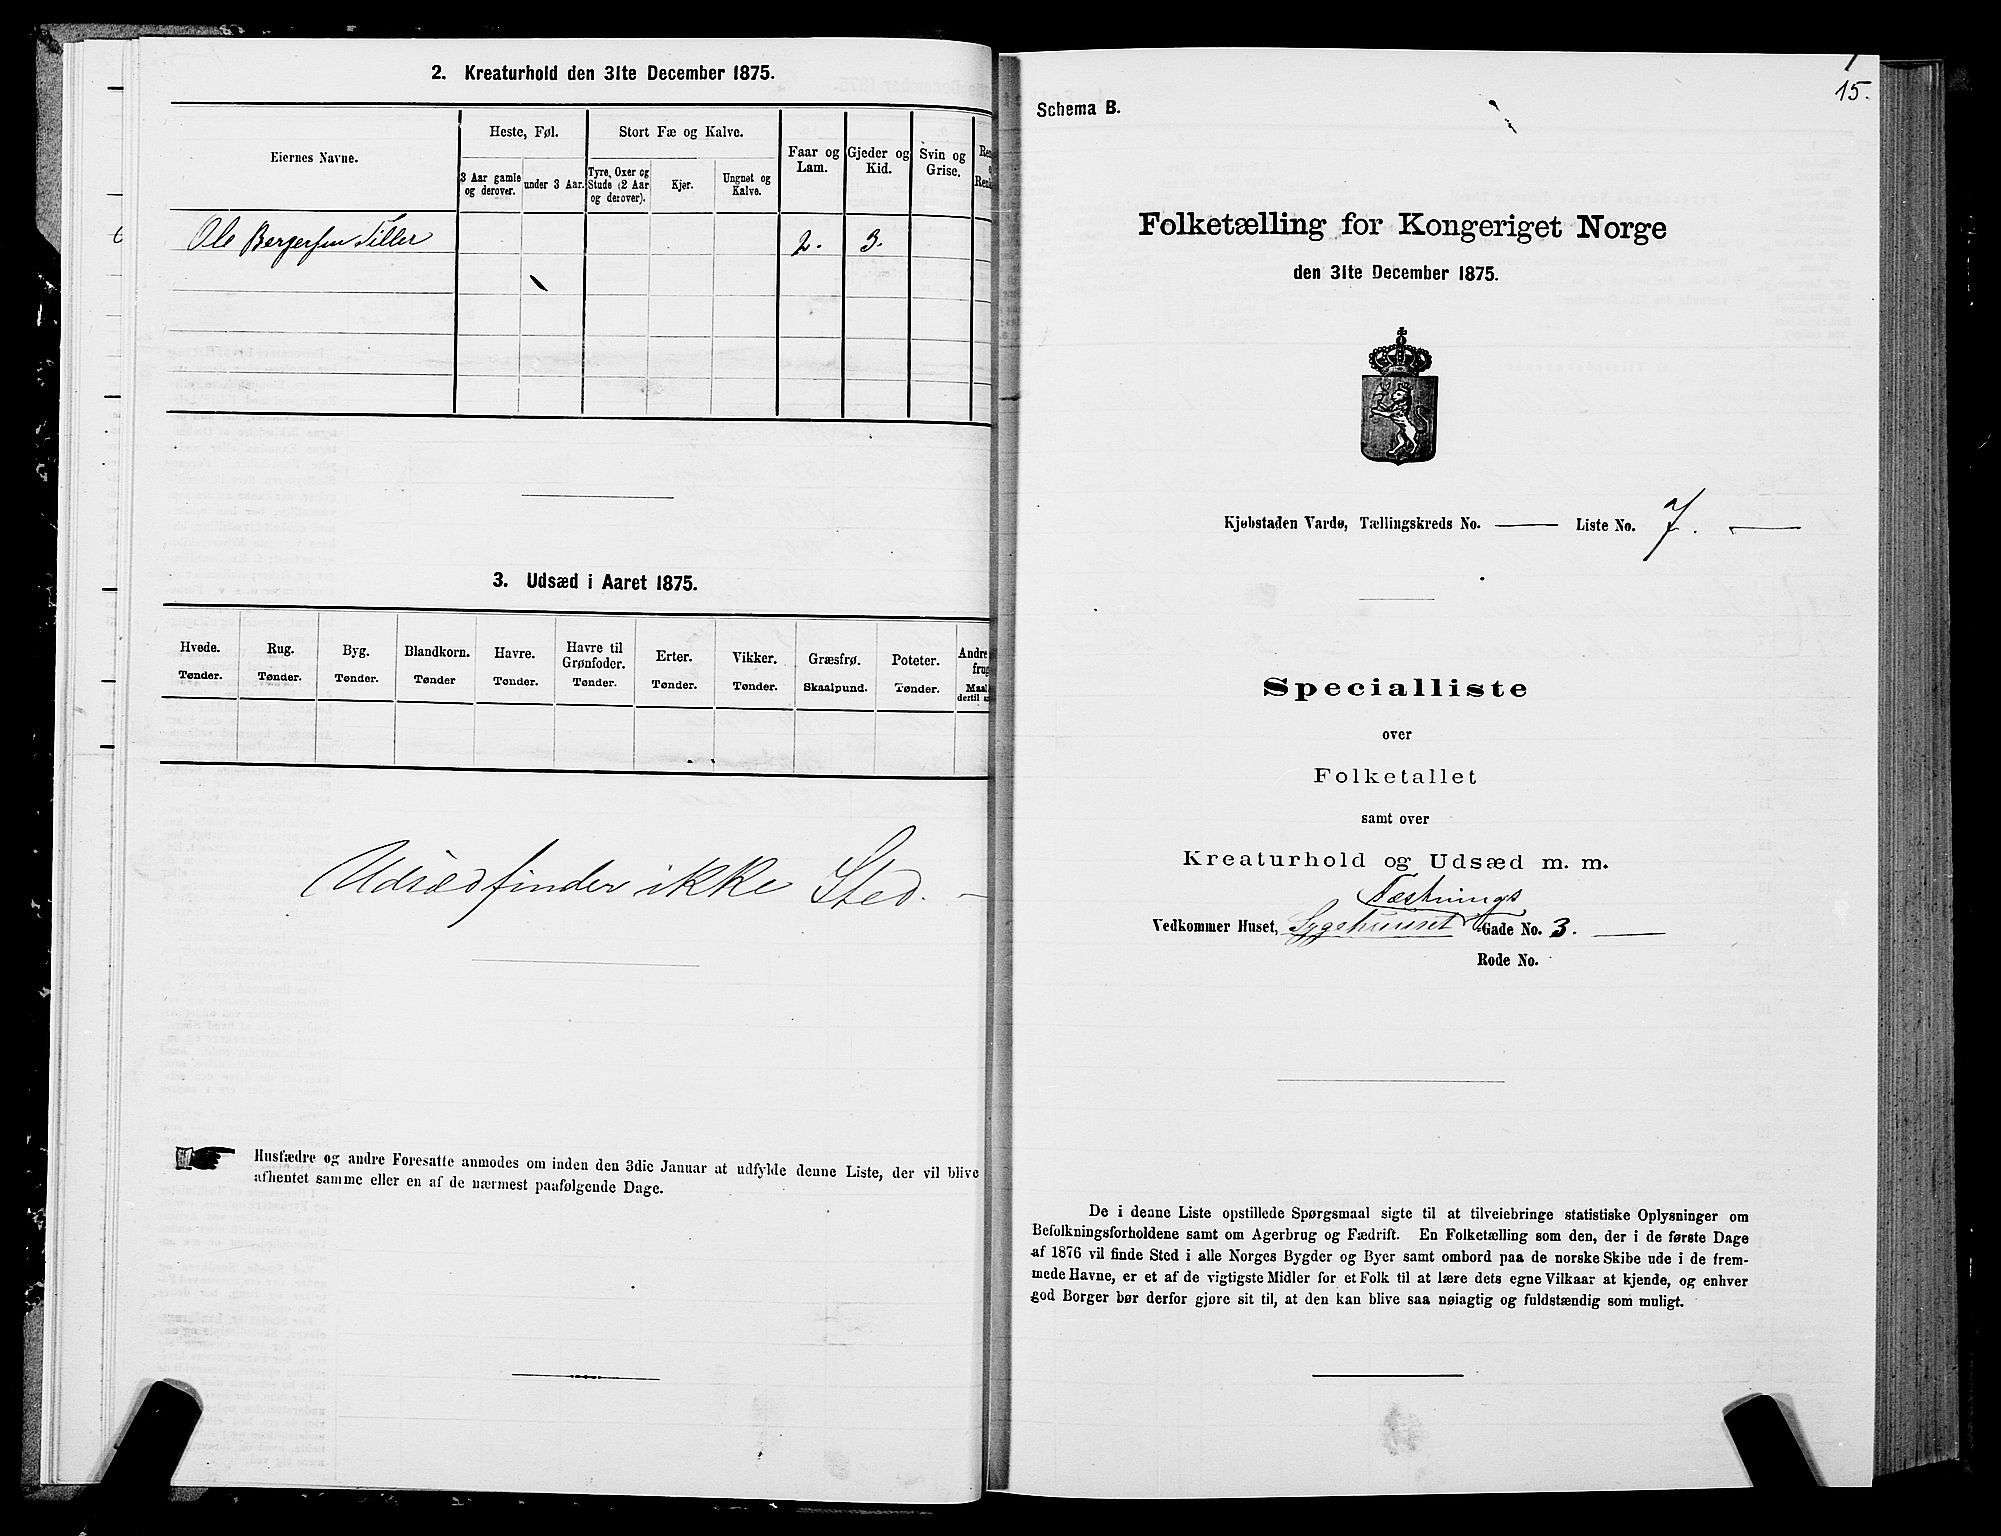 2. Kreaturhold den 31te December 1875.
Eiernes Navne.
Heste, Føl.
Stort Fæ og Kalve.
Faar og Lam.
Gjeder og Kid.
Svin og Grise.
3 Aar gamle og derover.
under 3 Aar.
Tyre, Oxer og Stude (2 Aar og derover).
Kjør.
Ungnøt og Kalve.
Ole Bergersen Tiller 2. 3.
3. Udsæd i Aaret 1875.
Hvede. Rug. Byg. Blandkorn. Havre. Havre til Grønfoder. Erter. Vikker. Græsfrø. Poteter. Andre
Tønder. Tønder. Tønder. Tønder Tønder. Tønder. Tønder. Tønder. Skaalpund. Tønder. Maal
dertil
Udsæd finder ikke Sted. —
Husfædre og andre Foresatte anmodes om inden den 3die Januar at udfylde denne Liste, der vil blive
afhentet samme eller en af de nærmest paafølgende Dage.
15.
Schema B.
Folketælling for Kongeriget Norge
den 31te December 1875.
Kjøbstaden Vardø, Tællingskreds No. — Liste No. 7. —
Specialliste
over
Folketallet
samt over
Kreaturhold og Udsæd m. m.
Fæstnings
Vedkommer Huset, Sygehuuset Gade No. 3. —
Rode No.
De i denne Liste opstillede Spørgsmaal sigte til at tilveiebringe statistiske Oplysninger om
Befolkningsforholdene samt om Agerbrug og Fædrift. En Folketælling som den, der i de første Dage
af 1876 vil finde Sted i alle Norges Bygder og Byer samt ombord paa de norske Skibe ude i de frem-
mede Havne, er et af de vigtigste Midler for et Folk til at lære dets egne Vilkaar at kjende, og enhver
god Borger bør derfor gjøre sit til, at den kan blive saa nøiagtig og fuldstændig som muligt.